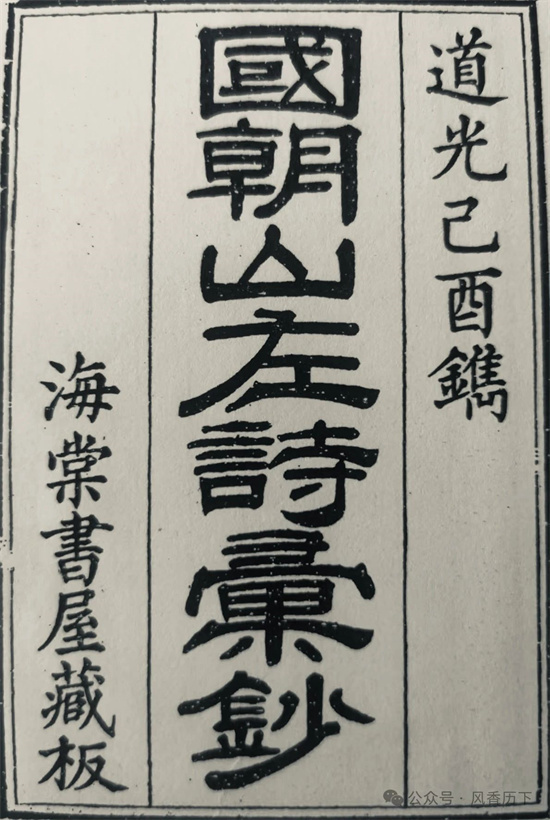 道光己酉鐫
國朝山左詩彙鈔
海棠書屋藏板
公众号 · 风香历下